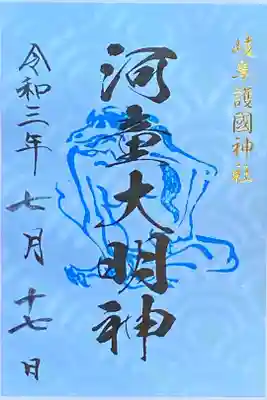 岐阜護國神社
河童大明神
令和三年 七月 十七日